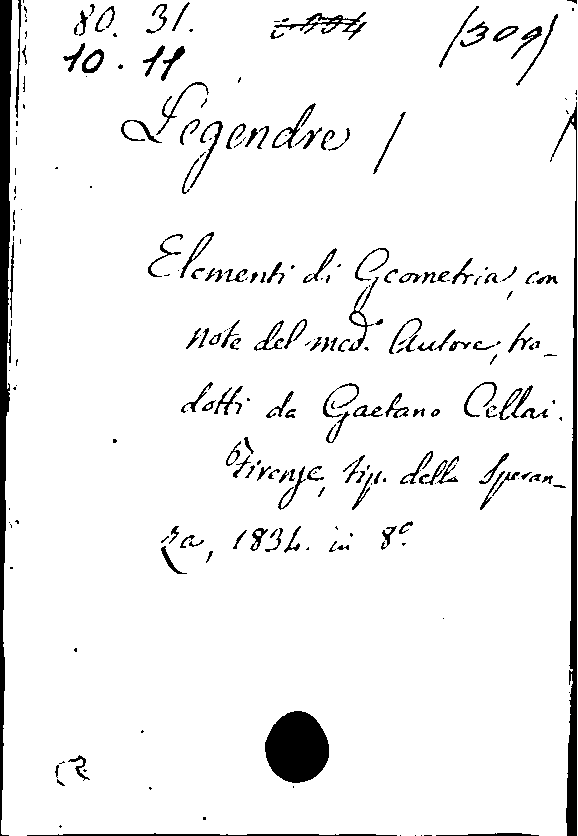 80. 31. (309)
10. 11
Legendre /
Elementi di Geometria, con
note del med.º Autore, tra-
dotti da Gaetano Cellai.
Firenze, tip. della Speran-
za, 1834. in 8º